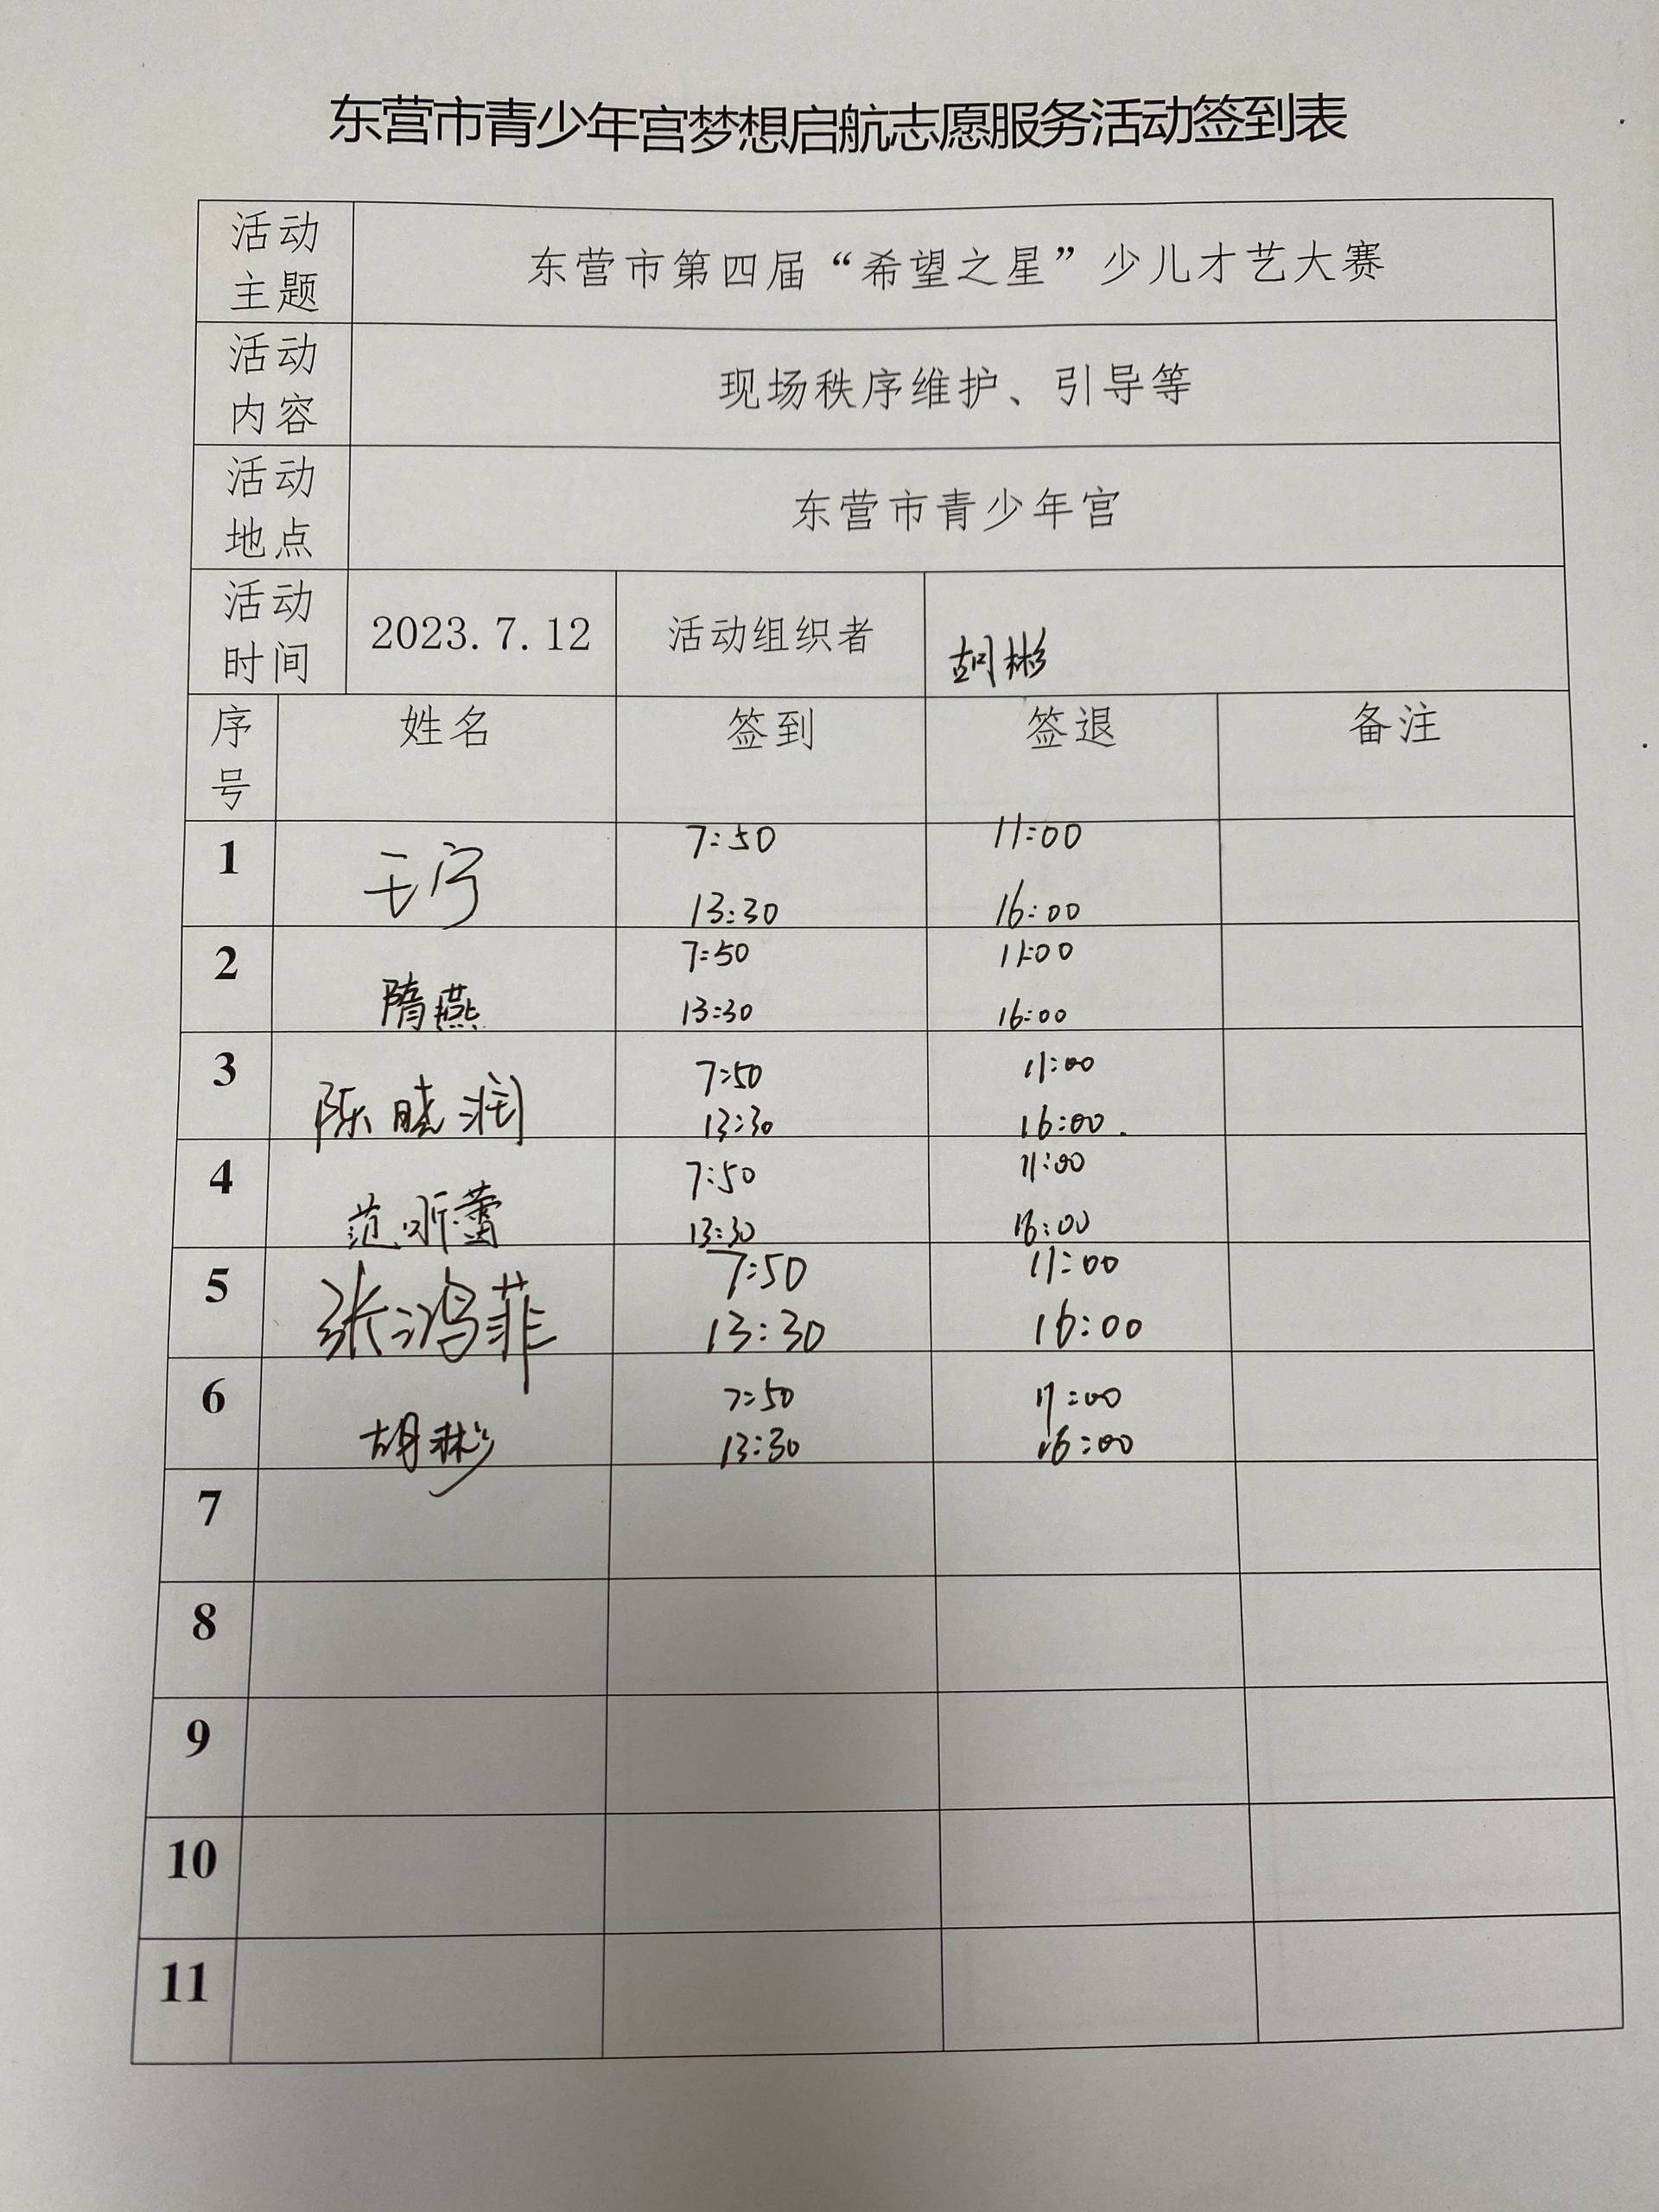 东营市青少年宫梦想启航志愿服务活动签到表
活动主题 东营市第四届“希望之星”少儿才艺大赛
活动内容 现场秩序维护、引导等
活动地点 东营市青少年宫
活动时间 2023.7.12 活动组织者 胡彬
序号 姓名 签到 签退 备注
1 于宁 7:50 11:00
13:30 16:00
2 隋燕 7:50 11:00
13:30 16:00
3 陈晓润 7:50 11:00
13:30 16:00.
4 范昕蕾 7:50 11:00
13:30 16:00
5 张鸿菲 7:50 11:00
13:30 16:00
6 胡彬 7:50 11:00
13:30 16:00
7
8
9
10
11